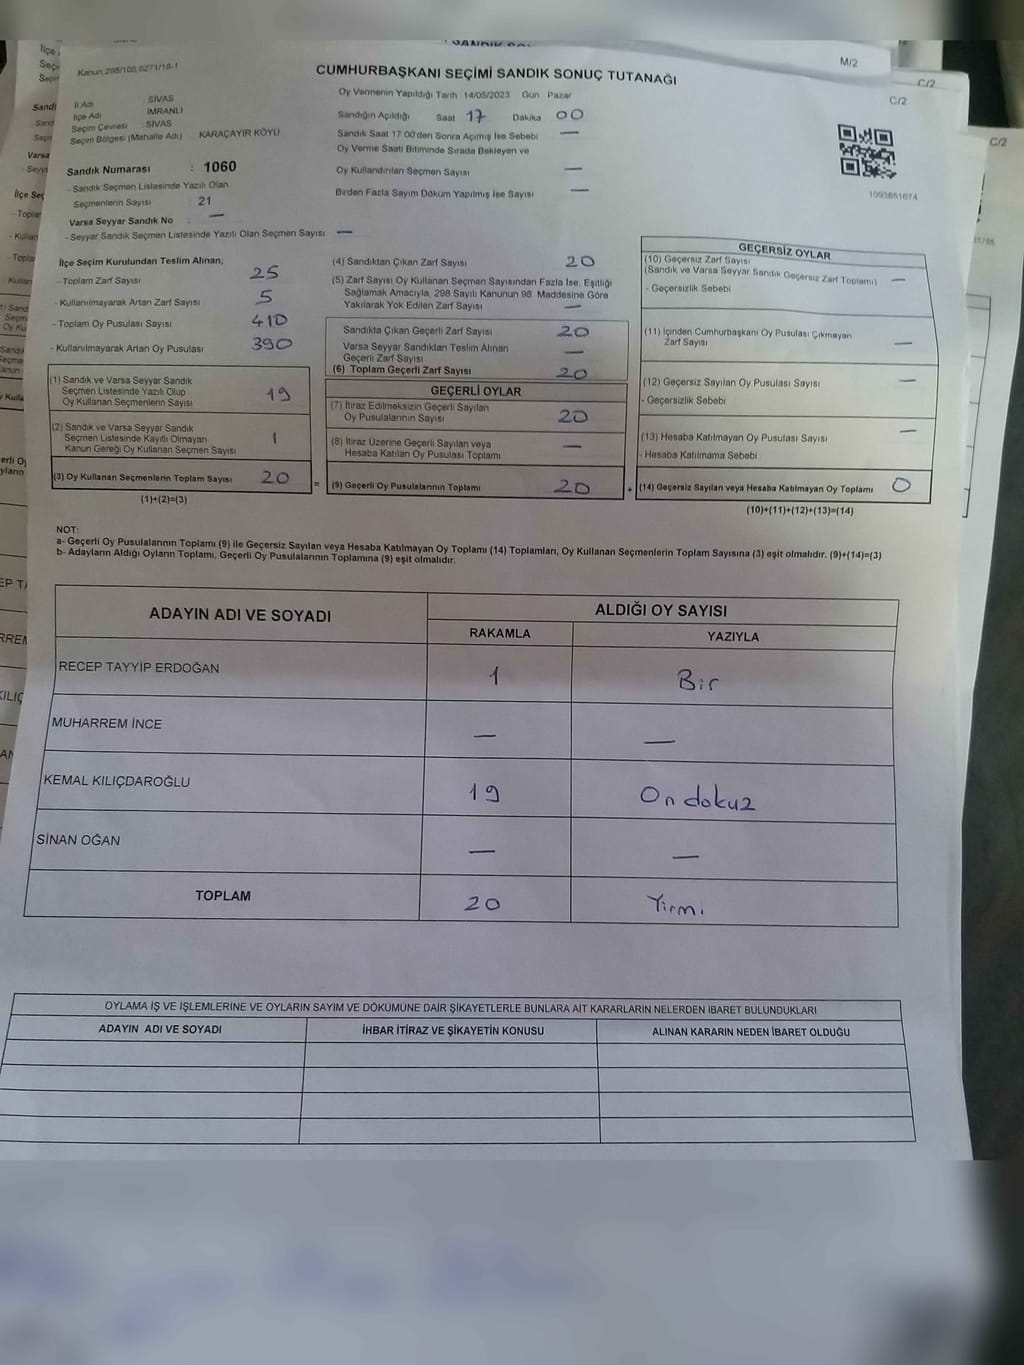 M/2
C/2
Kanun 298/105,6271/18-1
CUMHURBAŞKANI SEÇİMİ SANDIK SONUÇ TUTANAĞI
C/2
İl Adı SİVAS
İlçe Adı İMRANLI
Seçim Çevresi SİVAS
Seçim Bölgesi (Mahalle Adı) KARAÇAYIR KÖYÜ
Sandık Numarası : 1060
- Sandık Seçmen Listesinde Yazılı Olan
Seçmenlerin Sayısı : 21
Varsa Seyyar Sandık No : —
- Seyyar Sandık Seçmen Listesinde Yazılı Olan Seçmen Sayısı : —
Oy Vermenin Yapıldığı Tarih 14/05/2023 Gün Pazar
Sandığın Açıldığı Saat 17 Dakika 00
Sandık Saat 17:00'den Sonra Açılmış İse Sebebi —
Oy Verme Saati Bitiminde Sırada Bekleyen ve
Oy Kullandırılan Seçmen Sayısı —
Birden Fazla Sayım Döküm Yapılmış İse Sayısı —
1093651674
İlçe Seçim Kurulundan Teslim Alınan;
- Toplam Zarf Sayısı 25
- Kullanılmayarak Artan Zarf Sayısı 5
- Toplam Oy Pusulası Sayısı 410
- Kullanılmayarak Artan Oy Pusulası 390
(1) Sandık ve Varsa Seyyar Sandık
Seçmen Listesinde Yazılı Olup
Oy Kullanan Seçmenlerin Sayısı 19
(2) Sandık ve Varsa Seyyar Sandık
Seçmen Listesinde Kayıtlı Olmayan
Kanun Gereği Oy Kullanan Seçmen Sayısı 1
(3) Oy Kullanan Seçmenlerin Toplam Sayısı 20
(1)+(2)=(3)
(4) Sandıktan Çıkan Zarf Sayısı 20
(5) Zarf Sayısı Oy Kullanan Seçmen Sayısından Fazla İse, Eşitliği
Sağlamak Amacıyla, 298 Sayılı Kanunun 98. Maddesine Göre
Yakılarak Yok Edilen Zarf Sayısı —
Sandıkta Çıkan Geçerli Zarf Sayısı 20
Varsa Seyyar Sandıktan Teslim Alınan
Geçerli Zarf Sayısı —
(6) Toplam Geçerli Zarf Sayısı 20
GEÇERLİ OYLAR
(7) İtiraz Edilmeksizin Geçerli Sayılan
Oy Pusulalarının Sayısı 20
(8) İtiraz Üzerine Geçerli Sayılan veya
Hesaba Katılan Oy Pusulası Toplamı —
= (9) Geçerli Oy Pusulalarının Toplamı 20
GEÇERSİZ OYLAR
(10) Geçersiz Zarf Sayısı
(Sandık ve Varsa Seyyar Sandık Geçersiz Zarf Toplamı) —
- Geçersizlik Sebebi
(11) İçinden Cumhurbaşkanı Oy Pusulası Çıkmayan
Zarf Sayısı —
(12) Geçersiz Sayılan Oy Pusulası Sayısı —
- Geçersizlik Sebebi
(13) Hesaba Katılmayan Oy Pusulası Sayısı —
- Hesaba Katılmama Sebebi
+ (14) Geçersiz Sayılan veya Hesaba Katılmayan Oy Toplamı 0
(10)+(11)+(12)+(13)=(14)
NOT:
a- Geçerli Oy Pusulalarının Toplamı (9) ile Geçersiz Sayılan veya Hesaba Katılmayan Oy Toplamı (14) Toplamları, Oy Kullanan Seçmenlerin Toplam Sayısına (3) eşit olmalıdır. (9)+(14)=(3)
b- Adayların Aldığı Oyların Toplamı, Geçerli Oy Pusulalarının Toplamına (9) eşit olmalıdır.
ADAYIN ADI VE SOYADI ALDIĞI OY SAYISI
RAKAMLA YAZIYLA
RECEP TAYYİP ERDOĞAN 1 Bir
MUHARREM İNCE — —
KEMAL KILIÇDAROĞLU 19 On dokuz
SİNAN OĞAN — —
TOPLAM 20 Yirmi
OYLAMA İŞ VE İŞLEMLERİNE VE OYLARIN SAYIM VE DÖKÜMÜNE DAİR ŞİKAYETLERLE BUNLARA AİT KARARLARIN NELERDEN İBARET BULUNDUKLARI
ADAYIN ADI VE SOYADI İHBAR İTİRAZ VE ŞİKAYETİN KONUSU ALINAN KARARIN NEDEN İBARET OLDUĞU